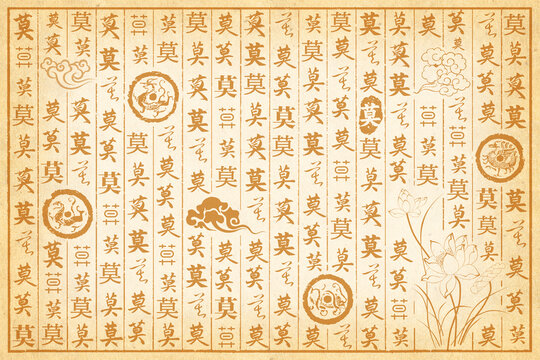 莫莫莫莫莫莫莫莫莫莫
莫莫莫莫莫莫莫莫莫
莫莫莫莫莫莫
莫莫莫莫莫莫
莫莫莫莫莫莫莫莫莫莫
莫莫莫莫莫莫莫莫莫莫莫莫
莫莫莫莫莫莫莫莫莫莫莫莫
莫莫莫莫莫莫莫莫莫莫
莫莫莫莫莫莫莫莫莫莫
莫莫莫莫莫莫莫莫莫莫莫莫
莫莫莫莫莫莫莫莫莫莫莫
莫莫莫莫莫莫莫莫莫莫
莫莫莫莫莫莫莫莫莫莫
莫莫莫莫莫莫莫莫莫莫
莫莫莫莫莫莫莫莫莫莫
莫莫莫莫莫莫莫莫莫莫莫莫
莫莫莫莫莫莫莫莫莫
莫莫莫莫莫莫莫莫
莫莫莫莫莫莫莫莫莫莫莫莫